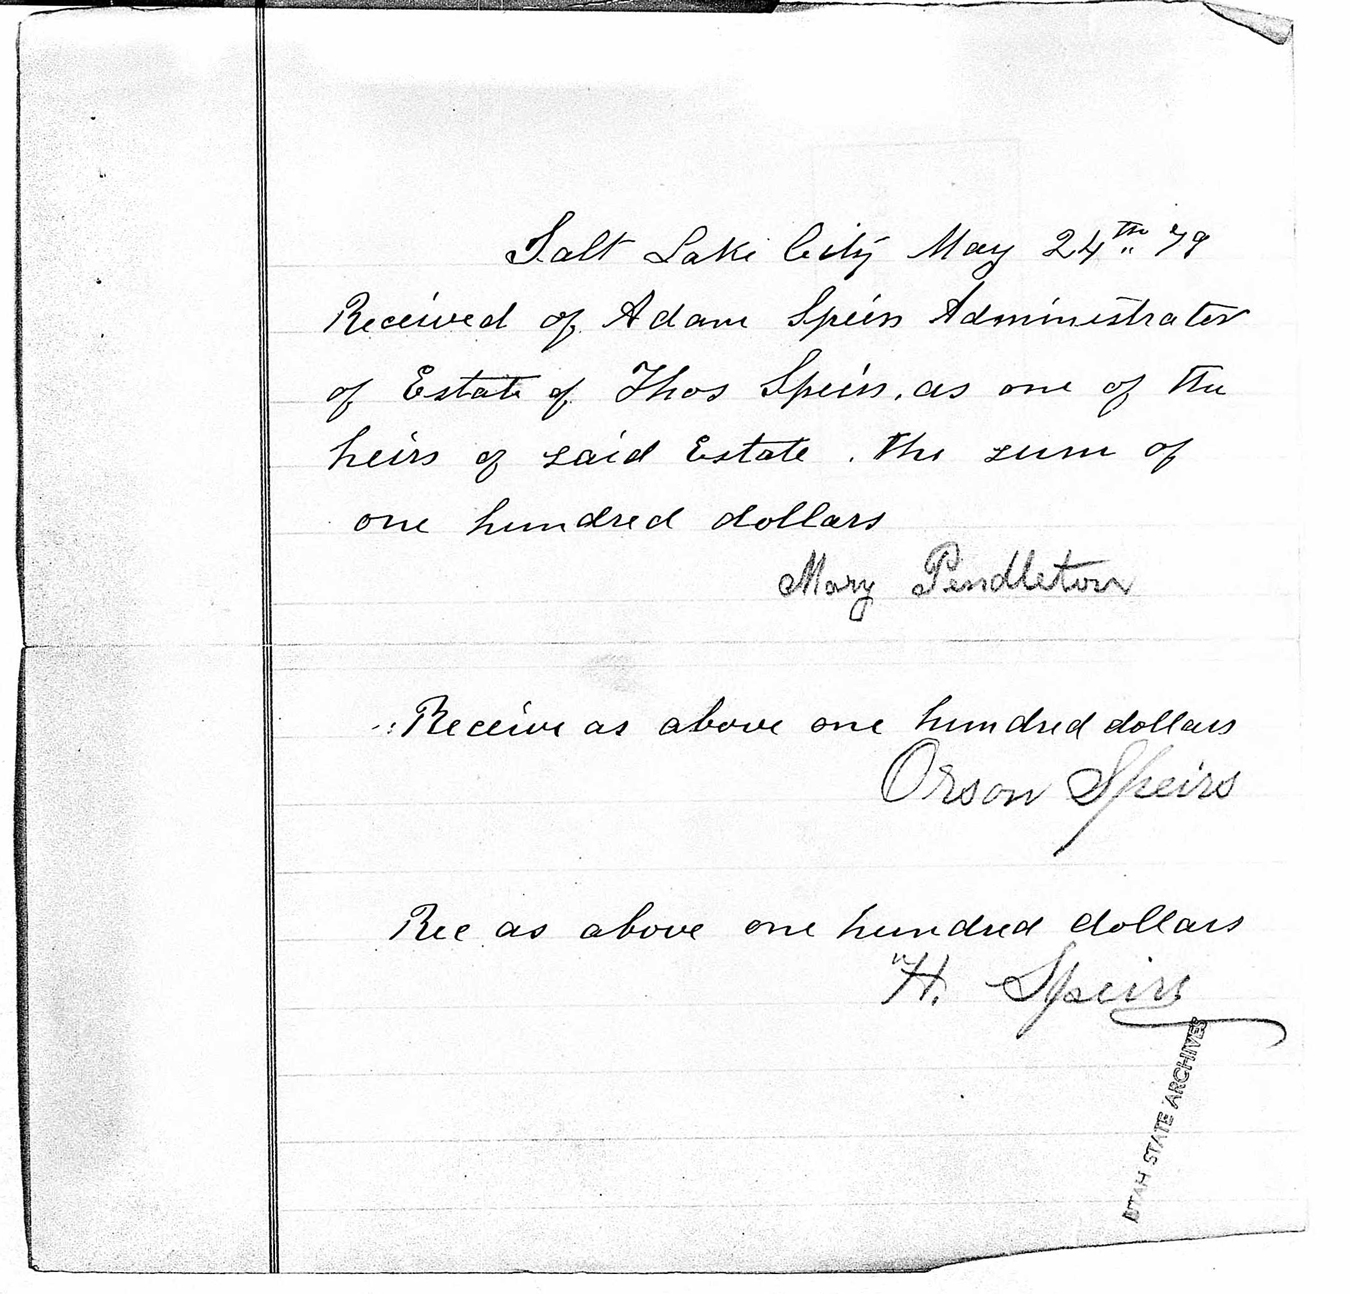 Salt Lake City May 24th 79
Received of Adam Speirs Administrator
of Estate of Thos Speirs, as one of the
heirs of said Estate. the sum of
one hundred dollars
Mary Pendleton
Receive as above one hundred dollars
Orson Speirs
Rec as above one hundred dollars
H. Speirs
UTAH STATE ARCHIVES